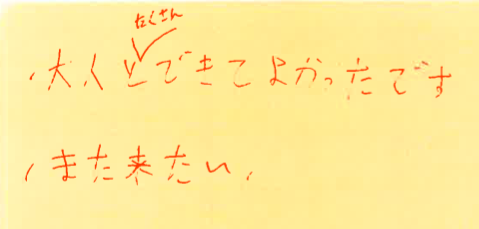 たくさん
大くとできてよかったです
また来たい